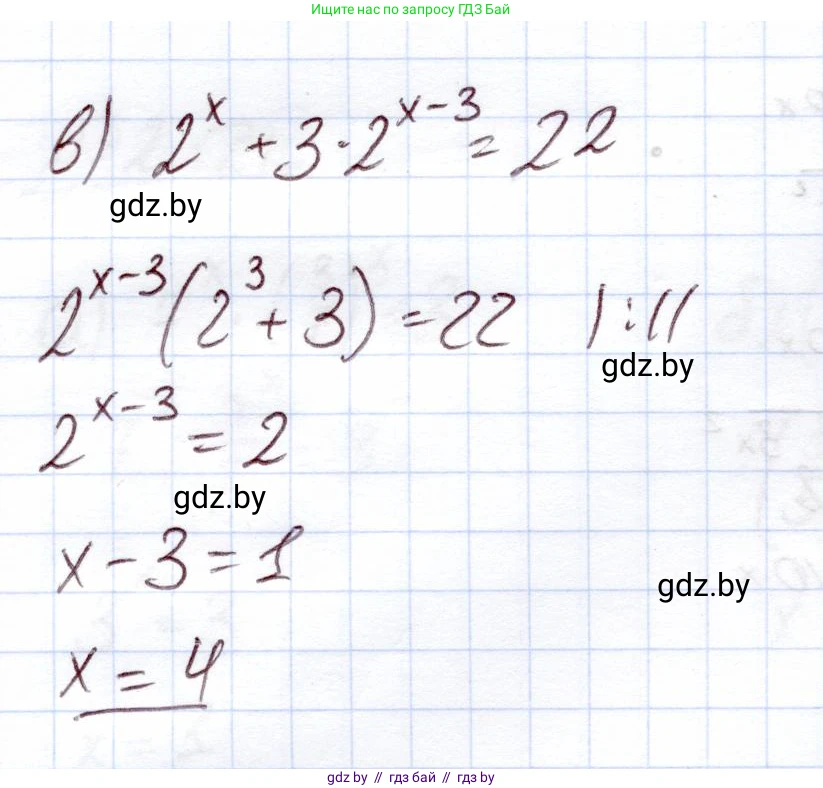 Ищите нас по запросу ГДЗ Бай
в) 2^x + 3·2^(x-3) = 22
gdz.by
2^(x-3)(2^3 + 3) = 22 | :11
gdz.by
2^(x-3) = 2
gdz.by
x - 3 = 1
gdz.by
x = 4
gdz by // гдз бай // гдз by